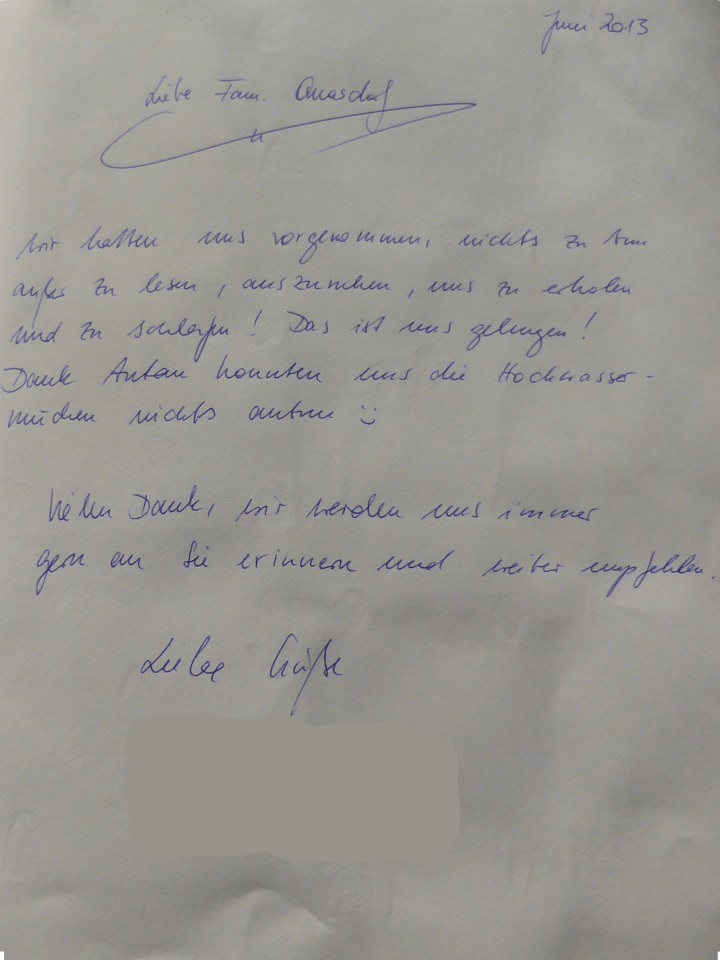 Juni 2013
Liebe Fam. Quasdorf
wir hatten uns vorgenommen, nichts zu tun
außer zu lesen, auszuruhen, uns zu erholen
und zu schlafen! Das ist uns gelungen!
Dank Autan konnten uns die Hochwasser-
mücken nichts antun :)
Vielen Dank, wir werden uns immer
gern an Sie erinnern und weiter empfehlen.
Liebe Grüße